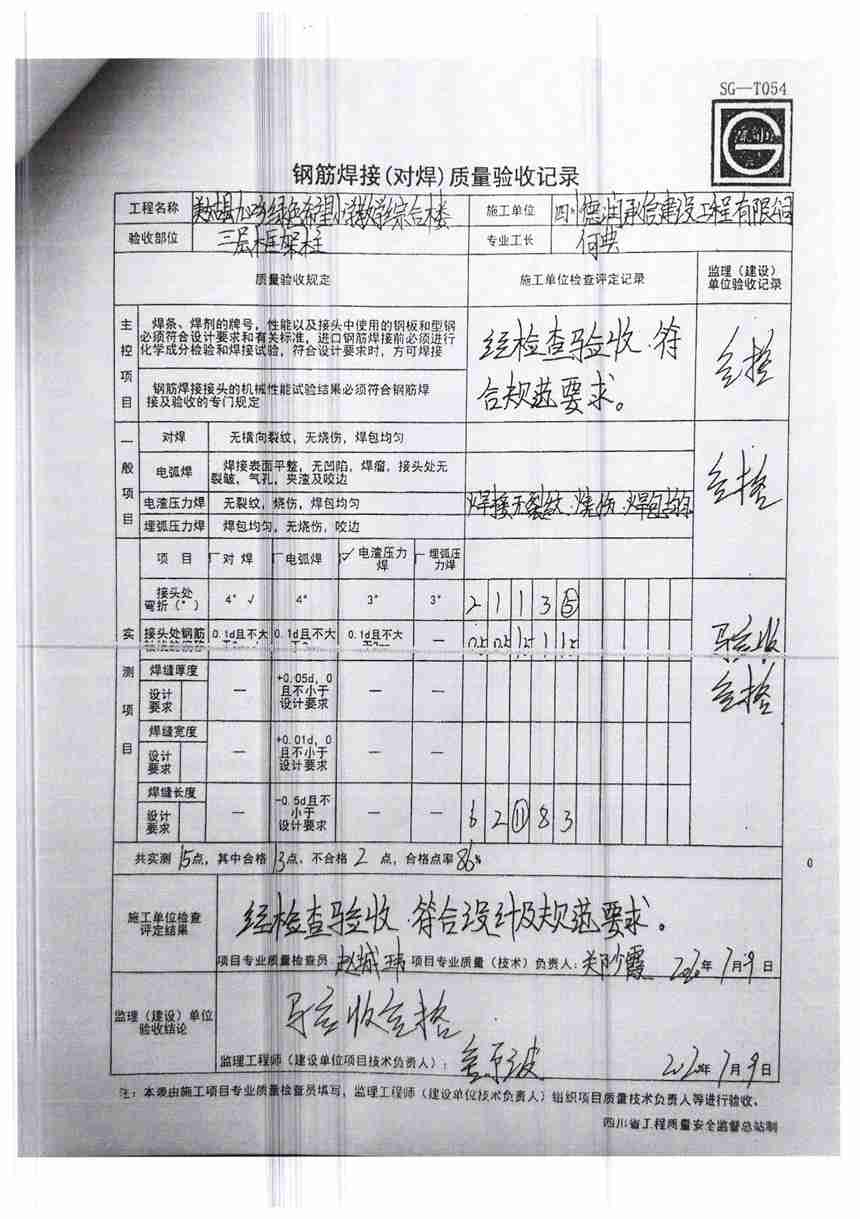 SG—T054
钢筋焊接(对焊)质量验收记录
工程名称 希望小学教学综合楼 施工单位 四川德润承信建设工程有限公司
验收部位 三层框架柱 专业工长 何典
质量验收规定 施工单位检查评定记录 监理（建设）
单位验收记录
主控项目
焊条、焊剂的牌号，性能以及接头中使用的钢板和型钢
必须符合设计要求和有关标准，进口钢筋焊接前必须进行
化学成分检验和焊接试验，符合设计要求时，方可焊接
钢筋焊接接头的机械性能试验结果必须符合钢筋焊
接及验收的专门规定
经检查验收.符
合规范要求。
合格
一般项目
对焊 无横向裂纹，无烧伤，焊包均匀
电弧焊 焊接表面平整，无凹陷，焊瘤，接头处无
裂皱，气孔，夹渣及咬边
合格
电渣压力焊 无裂纹，烧伤，焊包均匀 焊接无裂纹.烧伤.焊包均匀
埋弧压力焊 焊包均匀，无烧伤，咬边
实测项目
项 目 对 焊 电弧焊 ✓ 电渣压力
焊 埋弧压
力焊
接头处
弯折（°） 4° √ 4° 3° 3° 2 1 1 3 ⑤
接头处钢筋 0.1d且不大 0.1d且不大 0.1d且不大 —
验收
合格
焊缝厚度
设计
要求 — +0.05d, 0
且不小于
设计要求 — —
焊缝宽度
设计
要求 — +0.01d, 0
且不小于
设计要求 — —
焊缝长度
设计
要求 — -0.5d且不
小于
设计要求 — — 6 2 ⑪ 8 3
共实测 15点，其中合格 13点，不合格 2 点，合格点率86%
施工单位检查
评定结果
经检查验收.符合设计及规范要求。
项目专业质量检查员： 项目专业质量（技术）负责人： 2020年 7月9日
监理（建设）单位
验收结论
验收合格
监理工程师（建设单位项目技术负责人）： 2020年 7月9日
注：本表由施工项目专业质量检查员填写，监理工程师（建设单位技术负责人）组织项目质量技术负责人等进行验收。
四川省工程质量安全监督总站制